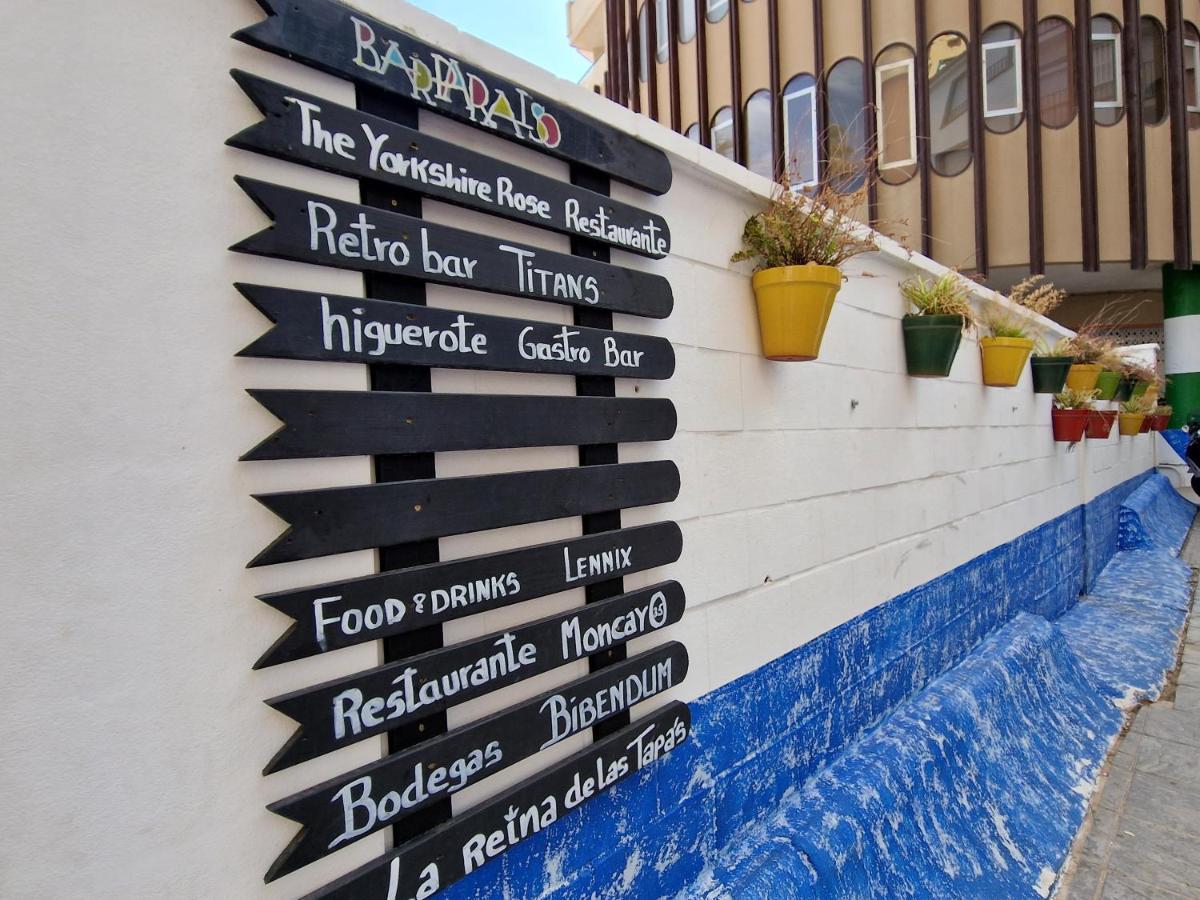 BAR PARAISO
The Yorkshire Rose Restaurante
Retro bar TITANS
higuerote Gastro Bar
FOOD & DRINKS LENNIX
Restaurante Moncayo 35
Bodegas BIBENDUM
La Reina de las Tapa's